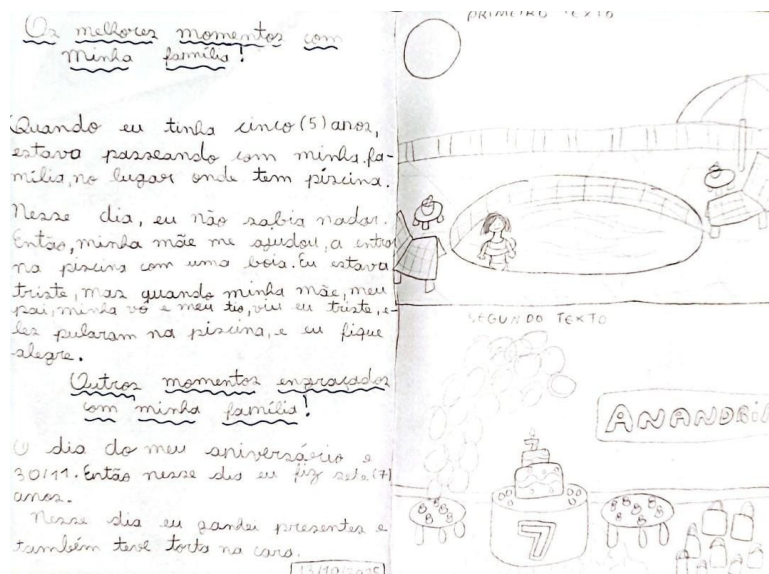 Os melhores momentos com
Minha família!
Quando eu tinha cinco (5) anos,
estava passeando com minha fa-
mília, no lugar onde tem piscina.
Nesse dia, eu não sabia nadar.
Então, minha mãe me ajudou, a entra
na piscina com uma boia. Eu estava
triste, mas quando minha mãe, meu
pai, minha vó e meu tio, viu eu triste, e-
les pularam na piscina, e eu fique
alegre.
Outros momentos engraçados
com minha família!
O dia do meu aniversário e
30/11. Então nesse dia eu fiz sete (7)
anos.
Nesse dia eu ganhei presentes e
também teve torta na cara.
13/10/2025
PRIMEIRO TEXTO
SEGUNDO TEXTO
7